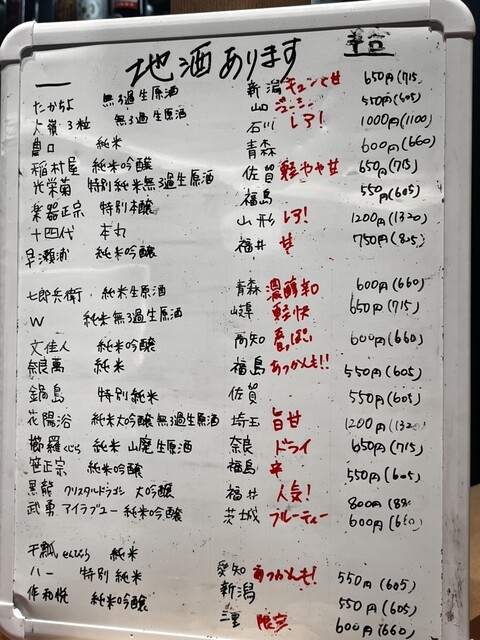 地酒あります
一
たかちよ 無ろ過生原酒 新潟 キュンと甘 650円(715)
大嶺3粒 無ろ過生原酒 山口 ジューシー 550円(605)
農口 純米 石川 レア! 1000円(1100)
青森 600円(660)
稲村屋 純米吟醸 佐賀 軽やや甘 650円(715)
光栄菊 特別純米無ろ過生原酒 福島 550円(605)
楽器正宗 特別本醸 山形 レア! 1200円(1320)
十四代 本丸 福井 甘 750円(825)
早瀬浦 純米吟醸
七郎兵衛 純米生原酒 青森 濃醇 600円(660)
W 純米無ろ過生原酒 岐阜 軽快 650円(715)
文佳人 純米吟醸 高知 600円(660)
奈良萬 純米 福島 あつかんも!! 550円(605)
鍋島 特別純米 佐賀 550円(605)
花陽浴 純米大吟醸無ろ過生原酒 埼玉 旨甘 1200円(1320
櫛羅くじら 純米 山廃生原酒 奈良 ドライ 650円(715)
笹正宗 純米吟醸 福島 辛 550円(605)
黒龍 クリスタルドラゴン 大吟醸 福井 人気! 800円(88
武勇 アイラブユー 純米吟醸 茨城 フルーティー 600円(660)
千瓢 純米 愛知 あつかんも! 550円(605)
八一 特別純米 新潟 550円(605)
作 純米吟醸 三重 限定 600円(660)